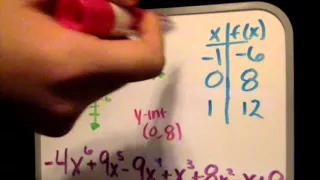 x f(x)
-1 -6
0 8
1 12
y-int
(0,8)
-4x⁶+9x⁵-9x⁴+x³+8x²-x+8